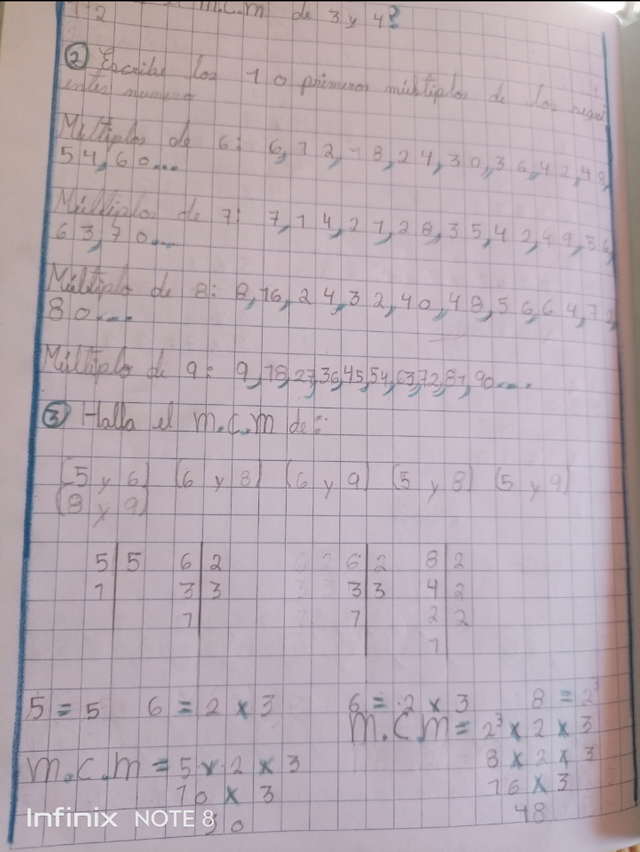 1+2 m.c.m de 3 y 4?
② Escribe los 10 primeros múltiplos de los
entes numero
Múltiplos de 6: 6, 12, 18, 24, 30, 36, 42, 48,
54, 60...
Múltiplo de 7: 7, 14, 21, 28, 35, 42, 49, 56,
63, 70...
Múltiplo de 8: 8, 16, 24, 32, 40, 48, 56, 64, 72,
80...
Múltiplo de 9: 9, 18, 27, 36, 45, 54, 63, 72, 81, 90....
③ Halla el m.c.m de:
(5 y 6) (6 y 8) (6 y 9) (5 y 8) (5 y 9)
(8 y 9)
5 | 5 6 | 2 6 | 2 8 | 2
1 | 3 | 3 3 | 3 4 | 2
1 | 1 | 2 | 2
1 |
5 = 5 6 = 2 x 3 6 = 2 x 3 8 = 2³
m.c.m = 2³ x 2 x 3
m.c.m = 5 x 2 x 3 8 x 2 x 3
10 x 3 16 x 3
30 48
Infinix NOTE 8